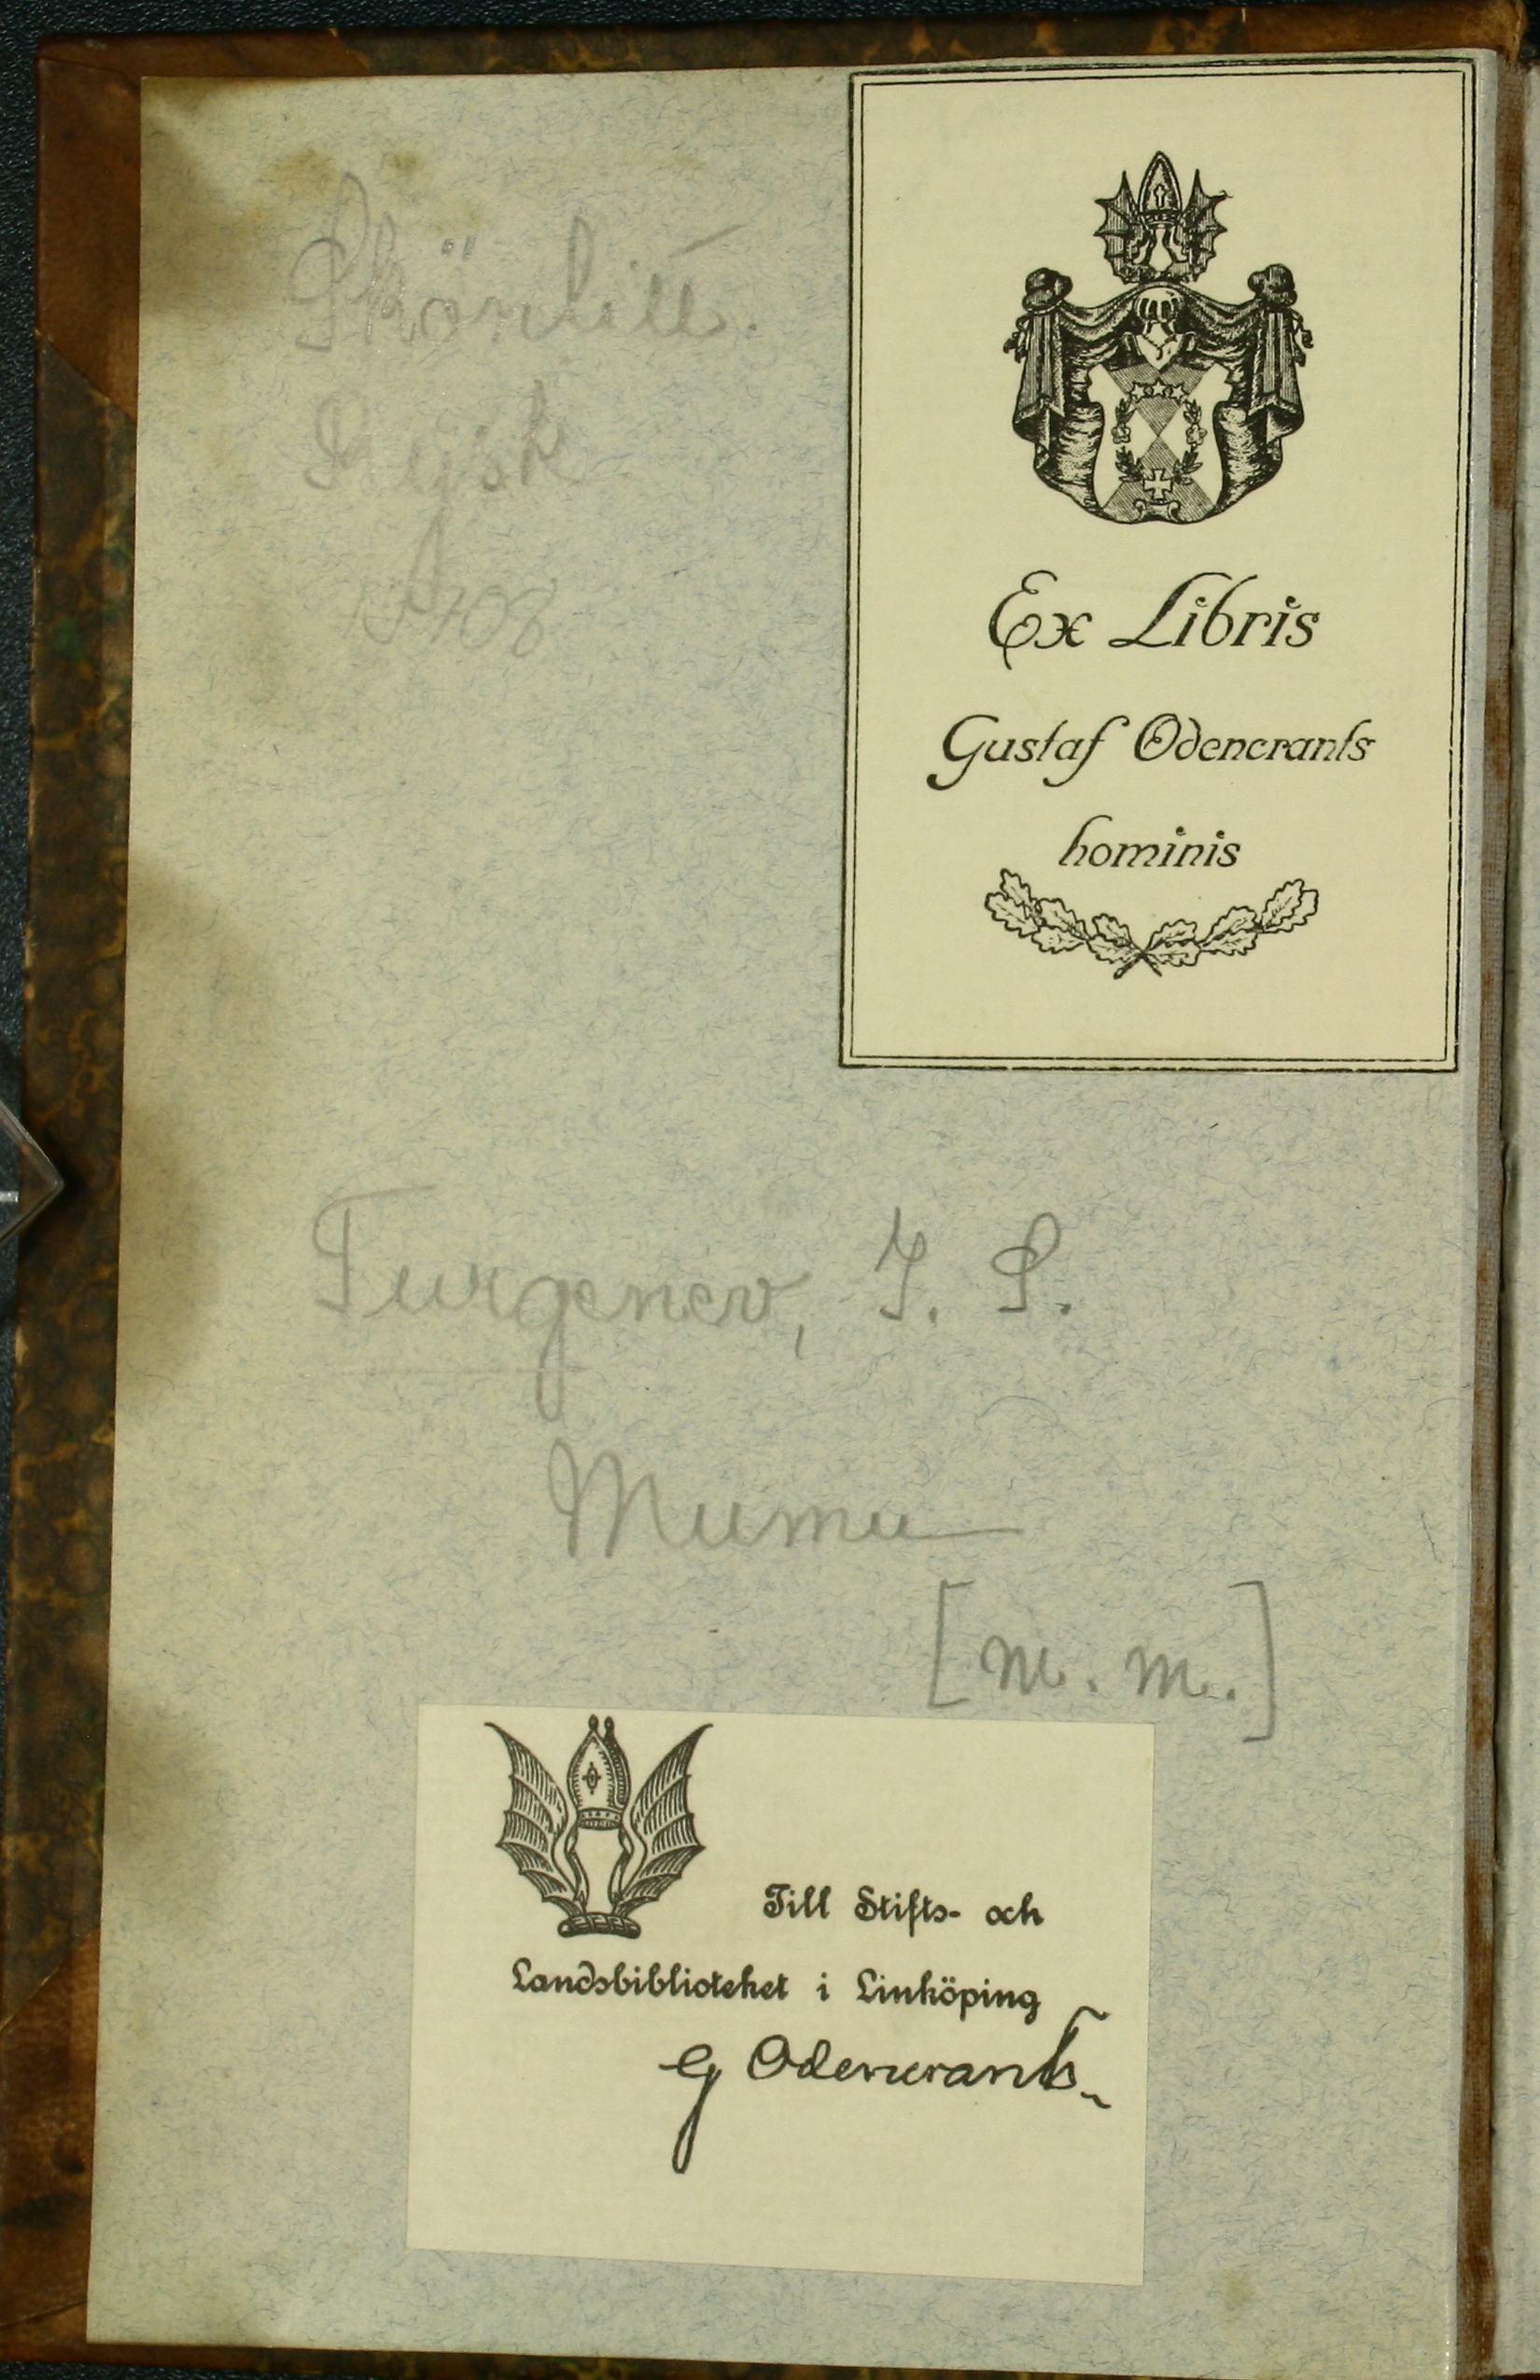 Skönlitt.
Rysk
Ex Libris
Gustaf Odencrants
hominis
Turgenev, I. S.
Mumu
[m. m.]
Till Stifts- och
Landsbiblioteket i Linköping
G Odencrants